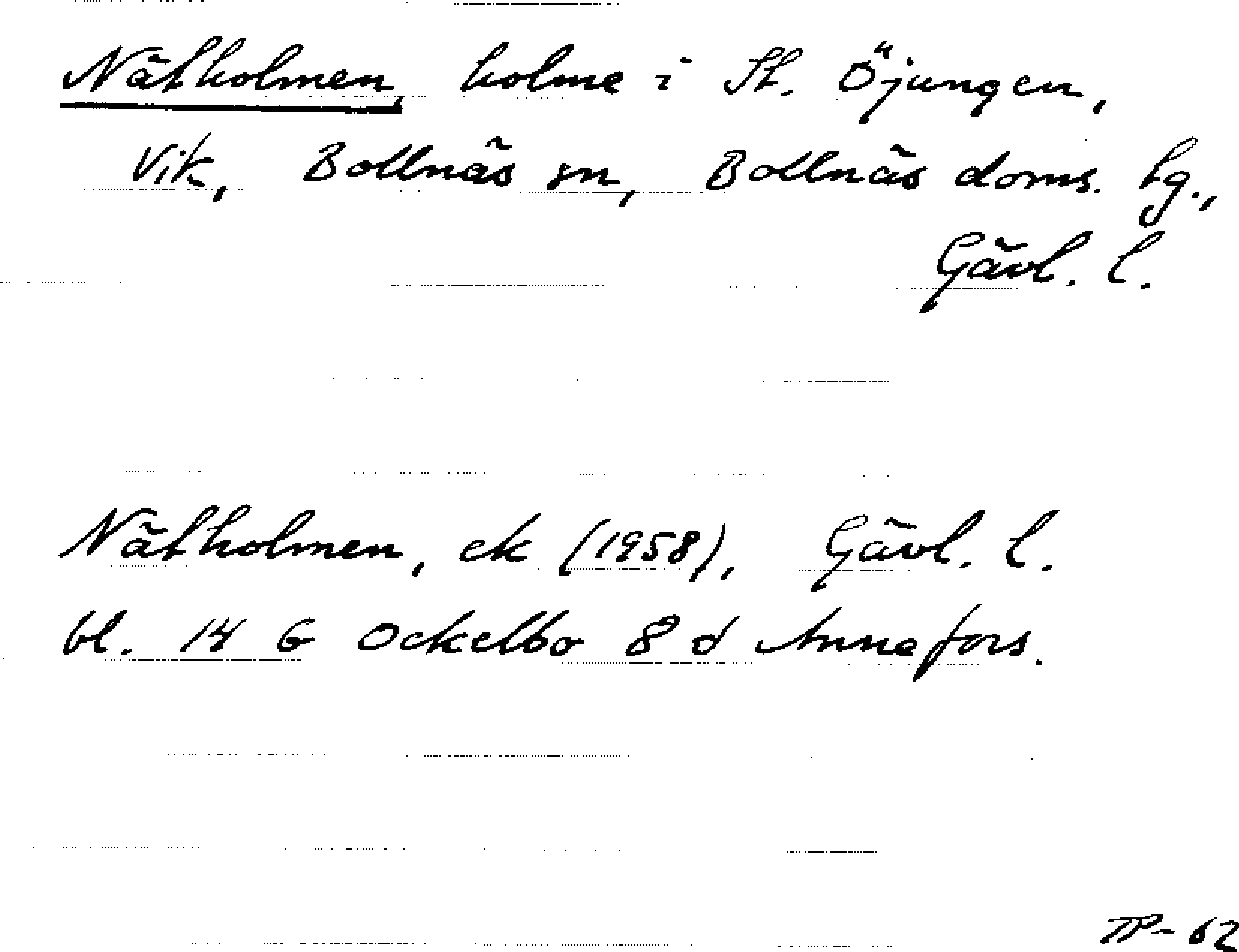 Nätholmen, holme i St. Öjungen,
Vik, Bollnäs sn, Bollnäs doms. hg.,
Gävl. l.
Nätholmen, ek (1958), Gävl. l.
bl. 14 G Ockelbo 8 d Annefors.
TP-62